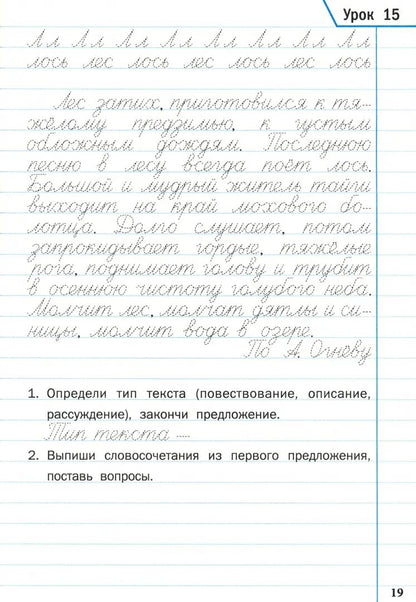 Урок 15
Лл Лл Лл Лл Лл Лл Лл Лл Лл
лось лес лось лес лось лес лось
Лес затих, приготовился к тя-
жёлому предзимью, к густым
обложным дождям. Последнюю
песню в лесу всегда поёт лось.
Большой и мудрый житель тайги
выходит на край мохового бо-
лотца. Долго слушает, потом
запрокидывает гордые, тяжёлые
рога, поднимает голову и трубит
в осеннюю чистоту голубого неба.
Молчит лес, молчат дятлы и си-
ницы, молчит вода в озере.
По А. Огневу
1. Определи тип текста (повествование, описание,
рассуждение), закончи предложение.
Тип текста —
2. Выпиши словосочетания из первого предложения,
поставь вопросы.
19